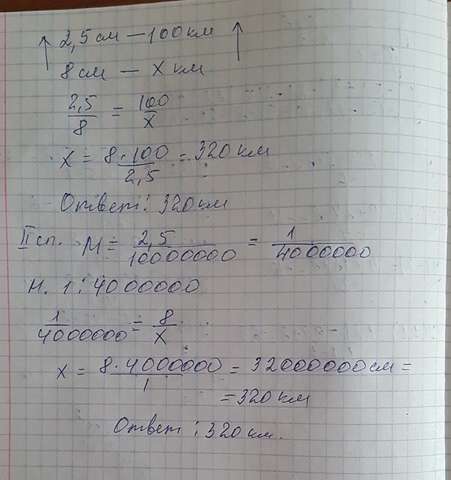 ↑ 2,5 см — 100 км ↑
8 см — x км
2,5/8 = 100/x
x = 8·100/2,5 = 320 км
Ответ: 320 км
II сп. M = 2,5/10000000 = 1/4000000
н. 1:4000000
1/4000000 = 8/x
x = 8·4000000/1 = 32000000 см =
= 320 км
Ответ: 320 км.